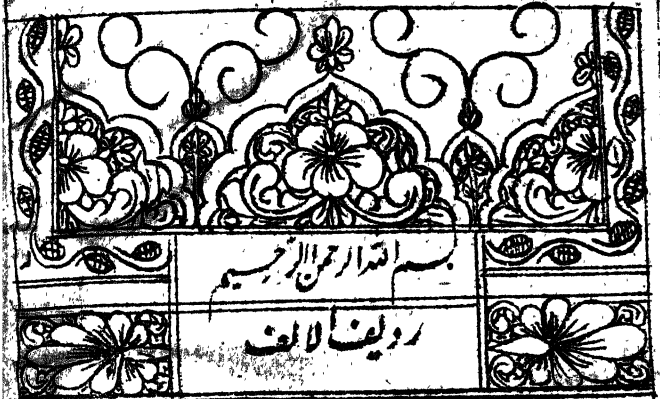 بسم الله الرحمن الرحیم
ردیف الالف